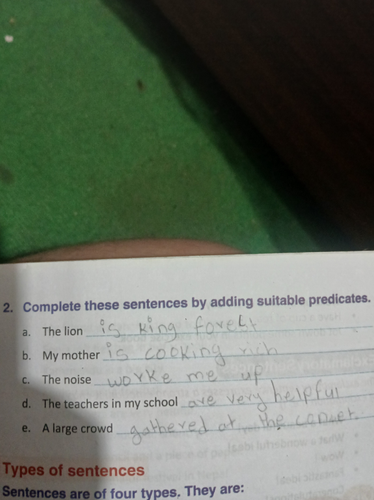 2. Complete these sentences by adding suitable predicates.
a. The lion is king forelt
b. My mother is cooking rich
c. The noise worke me up
d. The teachers in my school are very helpful
e. A large crowd gathered at the conner.
Types of sentences
Sentences are of four types. They are: